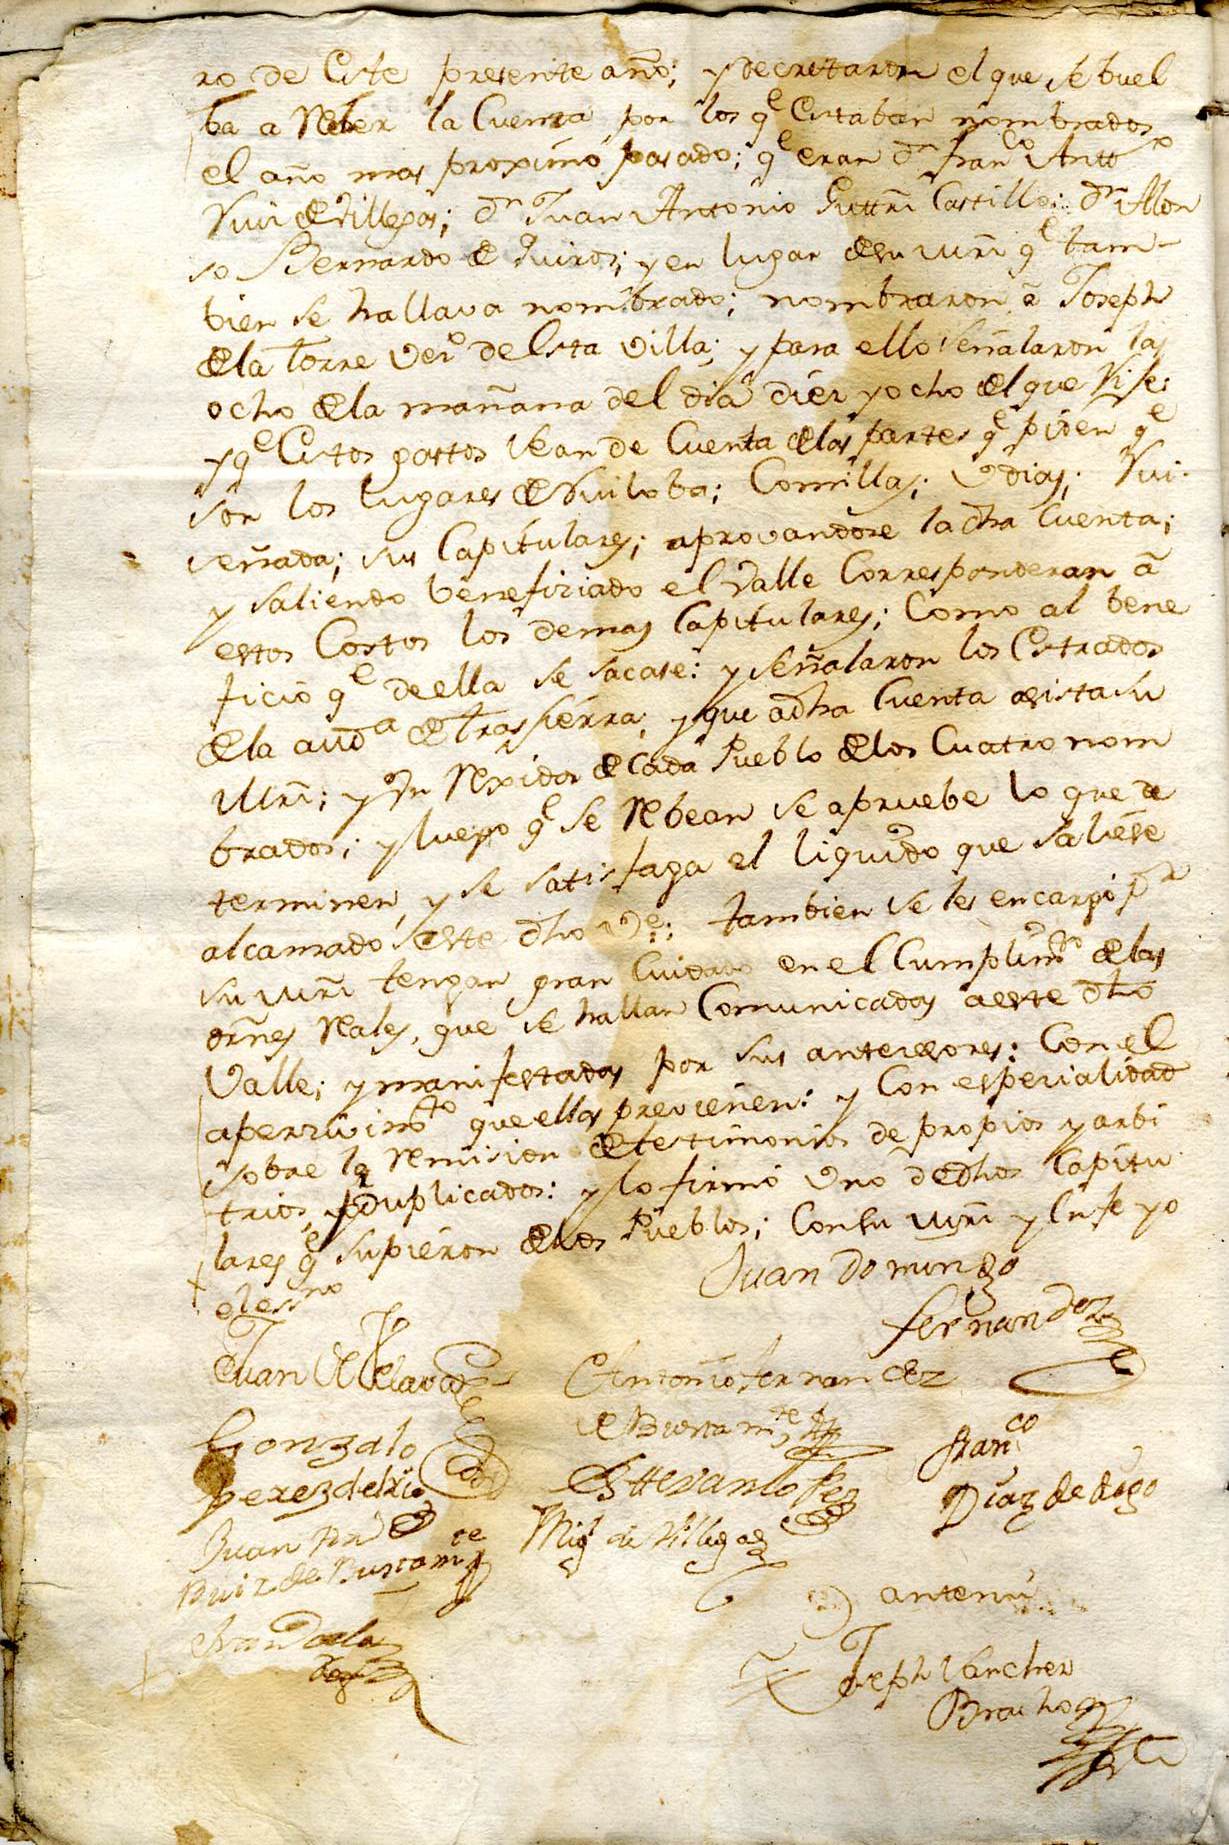 ro de Este presente año; y decretaron el que se buel
ba a Reber la Cuenta por los q^e Estaban nombrados
el año mas proximo pasado; q^e eran d^n fran^co Antt^o
Ruiz de Villegas; d^n Juan Antonio Guttrz Castillo; d^n Alon
so Bernardo de Quiros; y en lugar de su mrd q^e tam-
bien se hallava nombrado; nombraron a Joseph
de la torre vez^o de Esta villa; y para ello señalaron las
ocho de la mañana del dia diez y ocho del que Rije;
y q^e Estos gastos sean de Cuenta de las partes q^e piden q^e
son los lugares de Ruiloba; Comillas; Vdias; Rui-
señada; sus Capitulares; aprovandose la dha Cuenta;
y saliendo benefiziado el Valle Corresponderan a
estos Costos los demas Capitulares; Como al bene
ficio q^e de ella se sacase: y señalaron los Estrados
de la aud^a de Trassierra; y que a dha Cuenta asista su
Mrd; y Vn Rexidor de Cada Pueblo de los Cuatro nom
brados; y luego q^e se Rebean se apruebe lo que de
terminen, y se satisfaga el liquido que saliese
alcanzado este dho Ve; tambien se les encargó p^r
su mrd tengan gran Cuidado en el Cumplim^to de las
orñes Rales, que se hallan Comunicadas a este dho
Valle; y manifestadas por sus antezesores: Con el
aperzivim^to que ellas previenen: y Con espezialidad
sobre la Remision de testimonios de propios y arbi
trios, duplicados: y lo firmó Vno de dhos Capitu
lares q^e supieron de los Pueblos; Con su mrd y En fe yo
el ess^no
Juan Domingo
fernandez
Juan de
Antonio fernandez
de Bustam^te
Gonzalo
perez del Rio
Estteván lopez
fran^co
Diaz de
Juan
Ruiz de Bustam^te
Mig^l de Villegas
antemi
Joseph Sanchez
Bracho